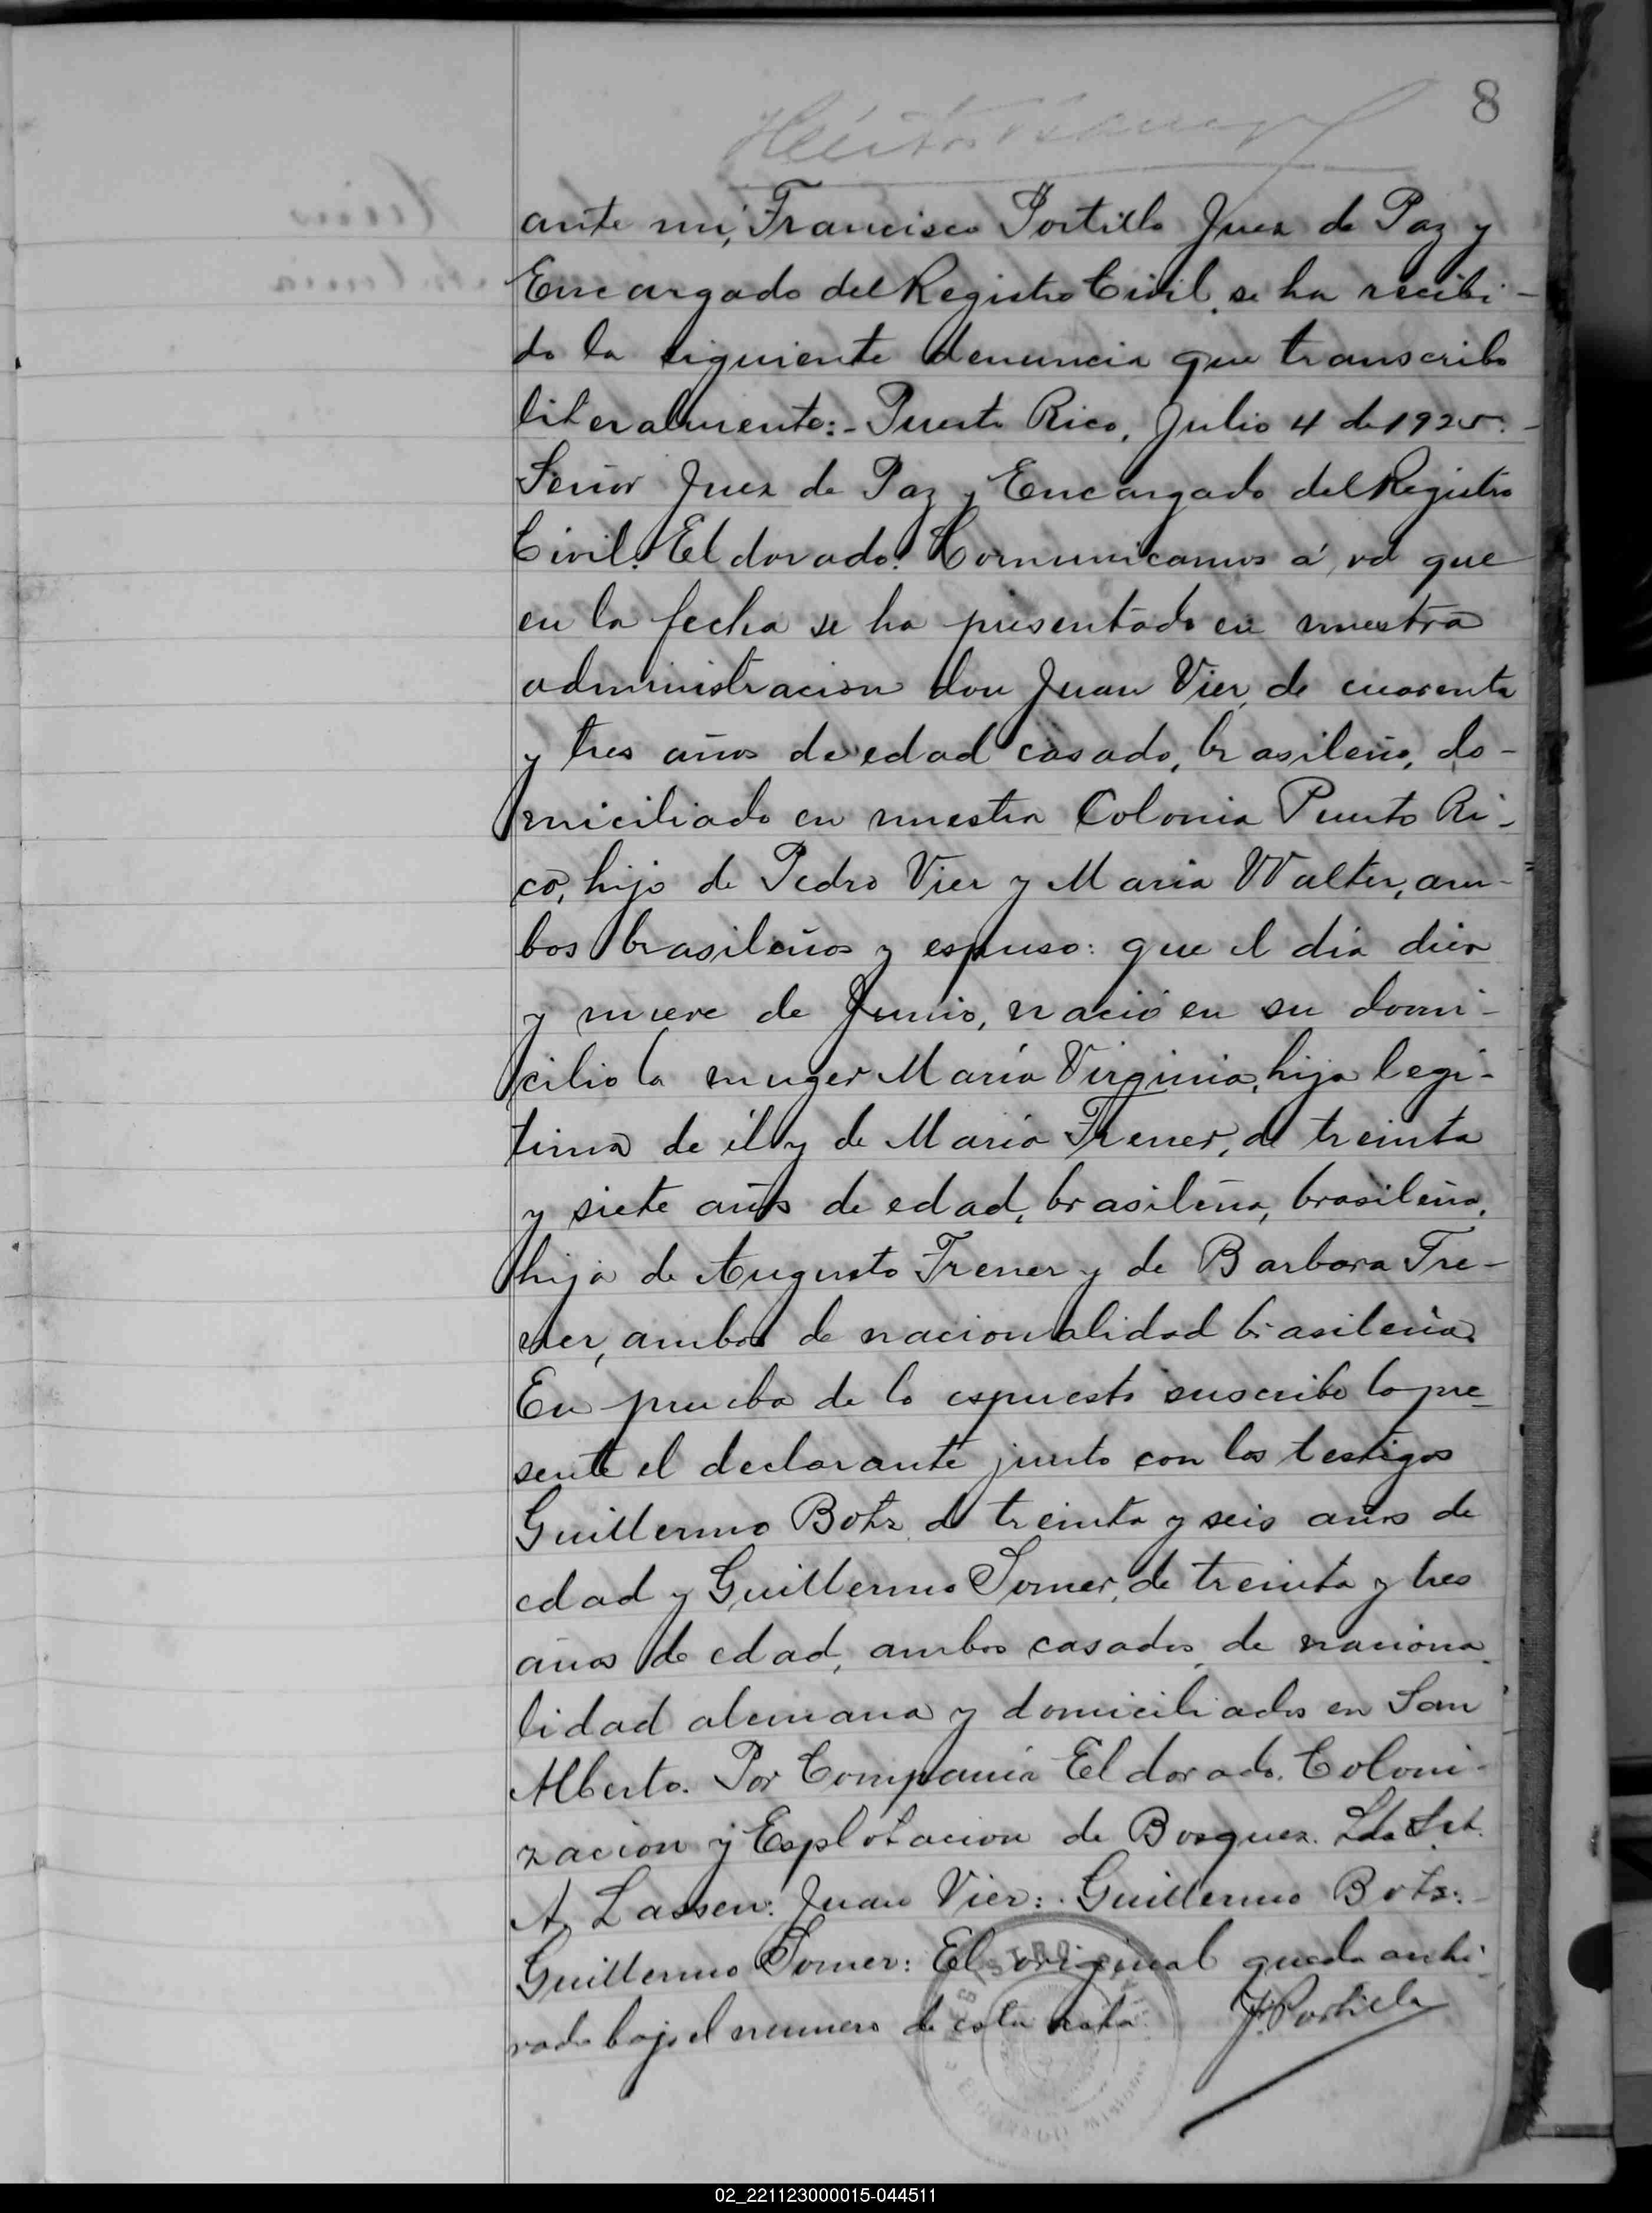 8
ante mi, Francisco Portillo Juez de Paz y
Encargado del Registro Civil se ha recibi-
do la siguiente denuncia que transcribo
literalmente:- Puerto Rico, Julio 4 de 1925.-
Señor Juez de Paz y Encargado del Registro
Civil. Eldorado. Comunicamos á vd que
en la fecha se ha presentado en nuestra
administracion don Juan Vier, de cuarenta
y tres años de edad casado, brasileño, do-
miciliado en nuestra Colonia Puerto Ri-
co, hijo de Pedro Vier y Maria Walter, am-
bos brasileños y espuso: que el dia diez
y nueve de Junio, nació en su domi-
cilio la muger María Virginia, hija legi-
tima de él y de María Frener, de treinta
y siete años de edad, brasileña, brasileña,
hija de Augusto Frener y de Barbara Fre-
ner, ambos de nacionalidad brasileña.
En prueba de lo espuesto suscribe la pre-
sente el declarante junto con los testigos
Guillermo Botz de treinta y seis años de
edad y Guillermo Somer, de treinta y tres
años de edad, ambos casados, de naciona-
lidad alemana y domiciliados en San
Alberto. Por Compañia Eldorado. Coloni-
zacion y Esplotacion de Bosques. Lda
A. Lassen: Juan Vier: Guillermo Botz:-
Guillermo Somer: El original queda archi-
vado bajo el numero de esta acta. F. Portillo
02_221123000015-044511